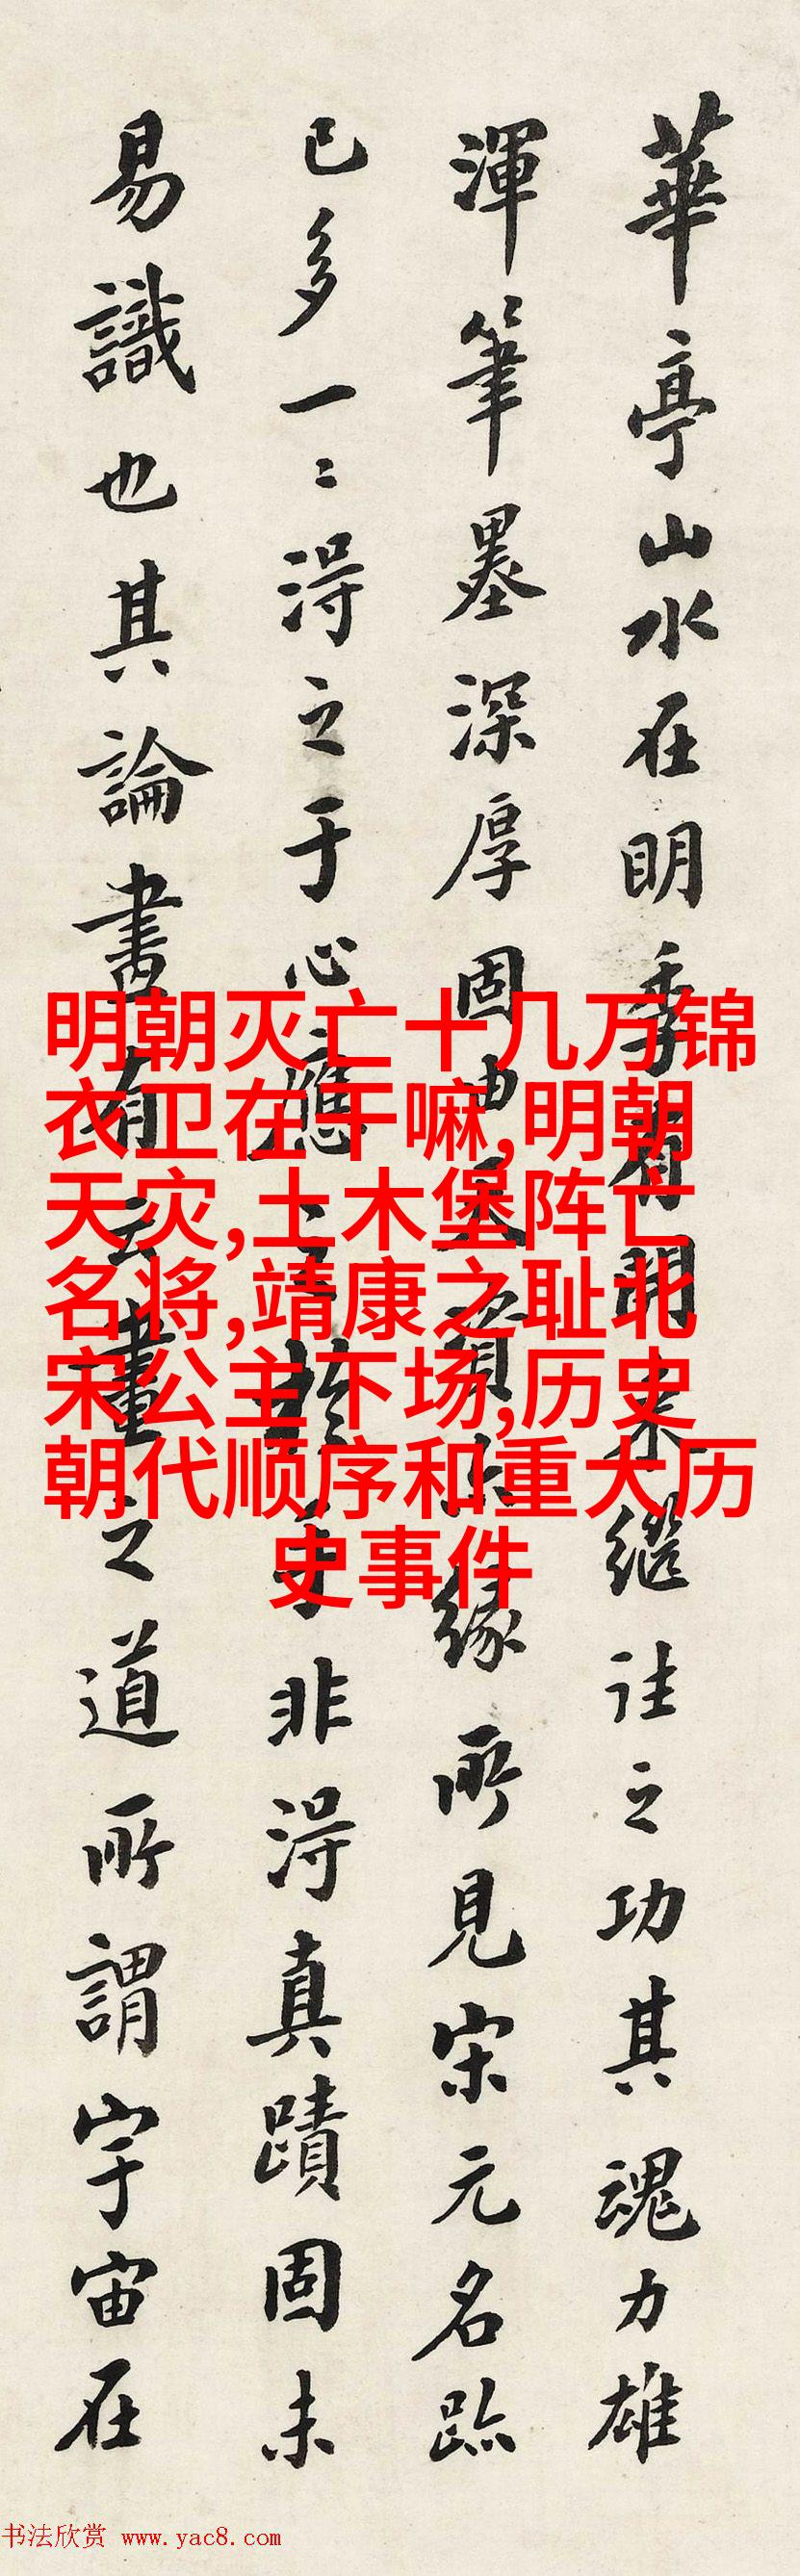 華亭山水在明季有開來繼往之功其魂力雄
渾筆墨深厚固由天資亦緣所見宋元名跡
已多一二得之于心應之於手非得真蹟固未
易識也其論書有云畫之道所謂宇宙在
明朝灭亡十几万锦
衣卫在干嘛,明朝
天灾,土木堡阵亡
名将,靖康之耻北
宋公主下场,历史
朝代顺序和重大历
史事件
书法欣赏 www.yac8.com